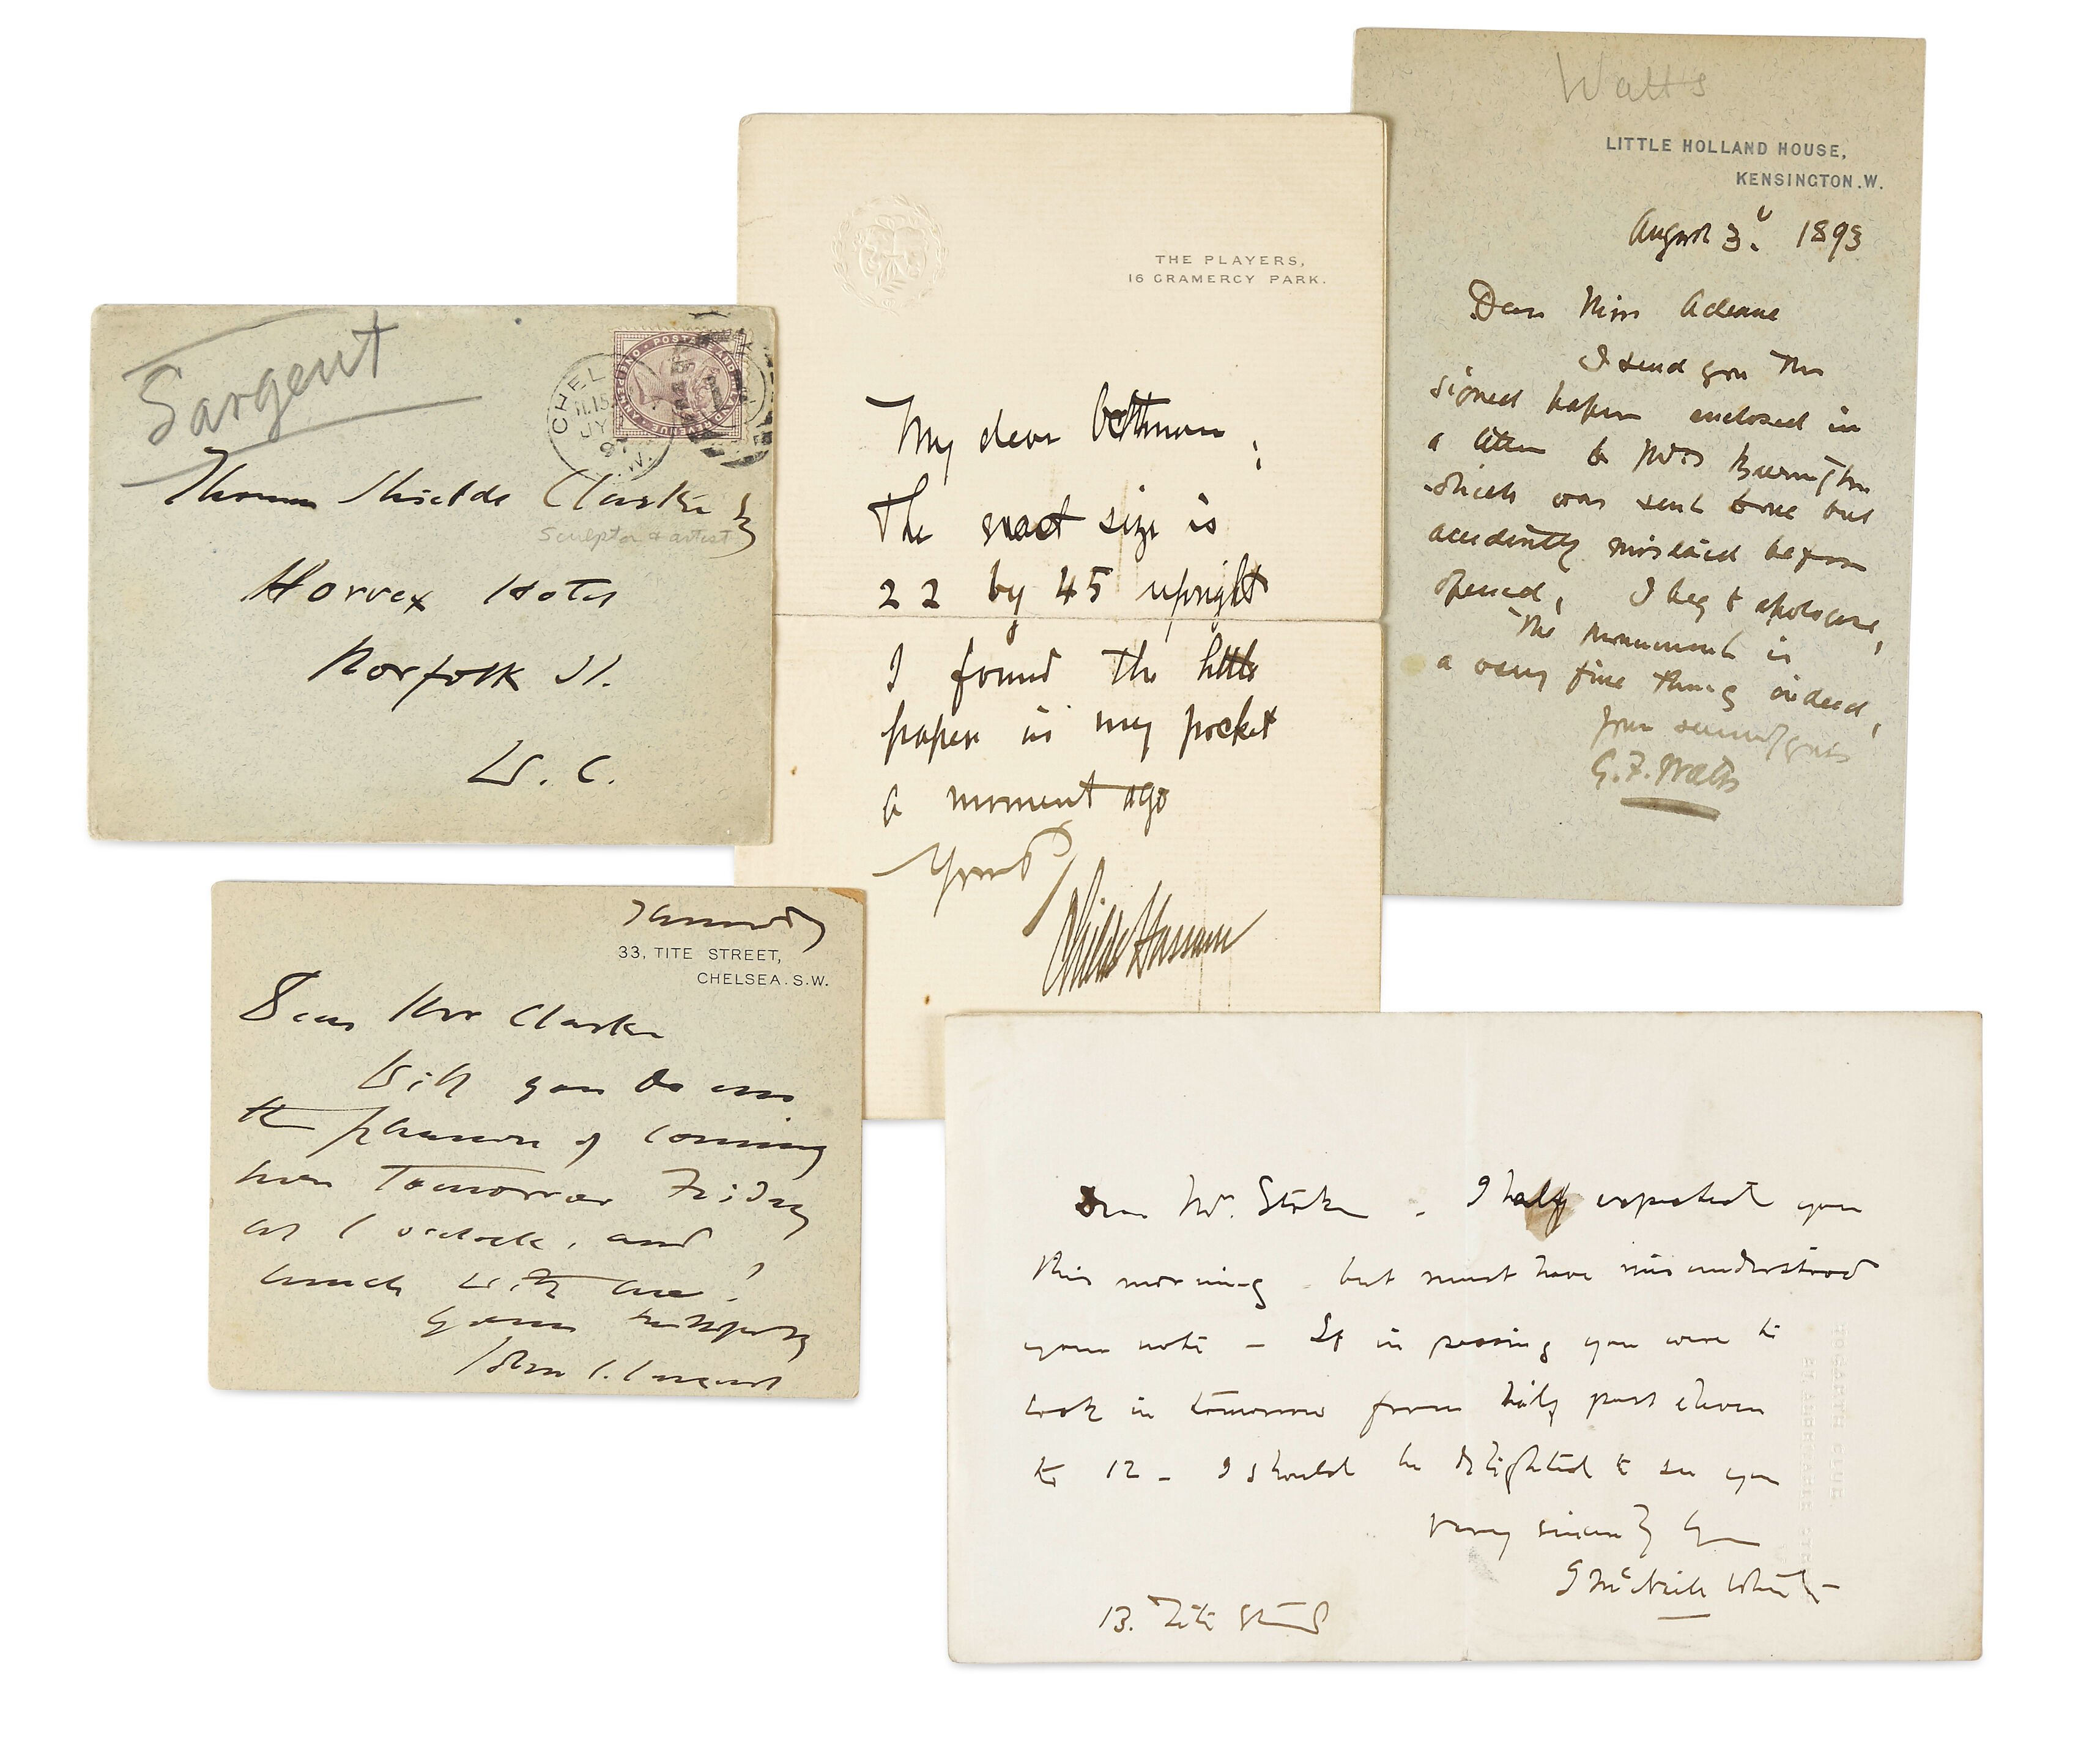 Sargent
CHELSEA
11.15
JY
97
S.W.
POSTAGE AND INLAND REVENUE
ONE PENNY
Thomas Shields Clarke
Sculptor & artist
Hotel
Norfolk St.
W. C.
THE PLAYERS,
16 GRAMERCY PARK.
My dear
The exact size is
22 by 45 upright
I found the little
paper in my pocket
a moment ago
Yours
Childe Hassam
Watts
LITTLE HOLLAND HOUSE,
KENSINGTON.W.
August 3. 1893
Dear Miss Adeane
I send you the
signed paper enclosed in
a letter to
which was sent to me but
accidently mislaid before
opened, I beg to apologise,
The monument is
a very fine thing indeed,
G. F. Watts
Thursday
33, TITE STREET,
CHELSEA. S.W.
Dear Mr Clarke
Will you do me
the pleasure of coming
here tomorrow Friday
at 1 oclock, and
lunch with me?
yours
John S. Sargent
Dear Mr. - I half expected you
this morning - but must have misunderstood
your note - If in passing you were to
look in tomorrow from half past eleven
to 12 - I should be delighted to see you
Very sincerely yrs
J McNeill Whistler
13. Tite Street
HOGARTH CLUB